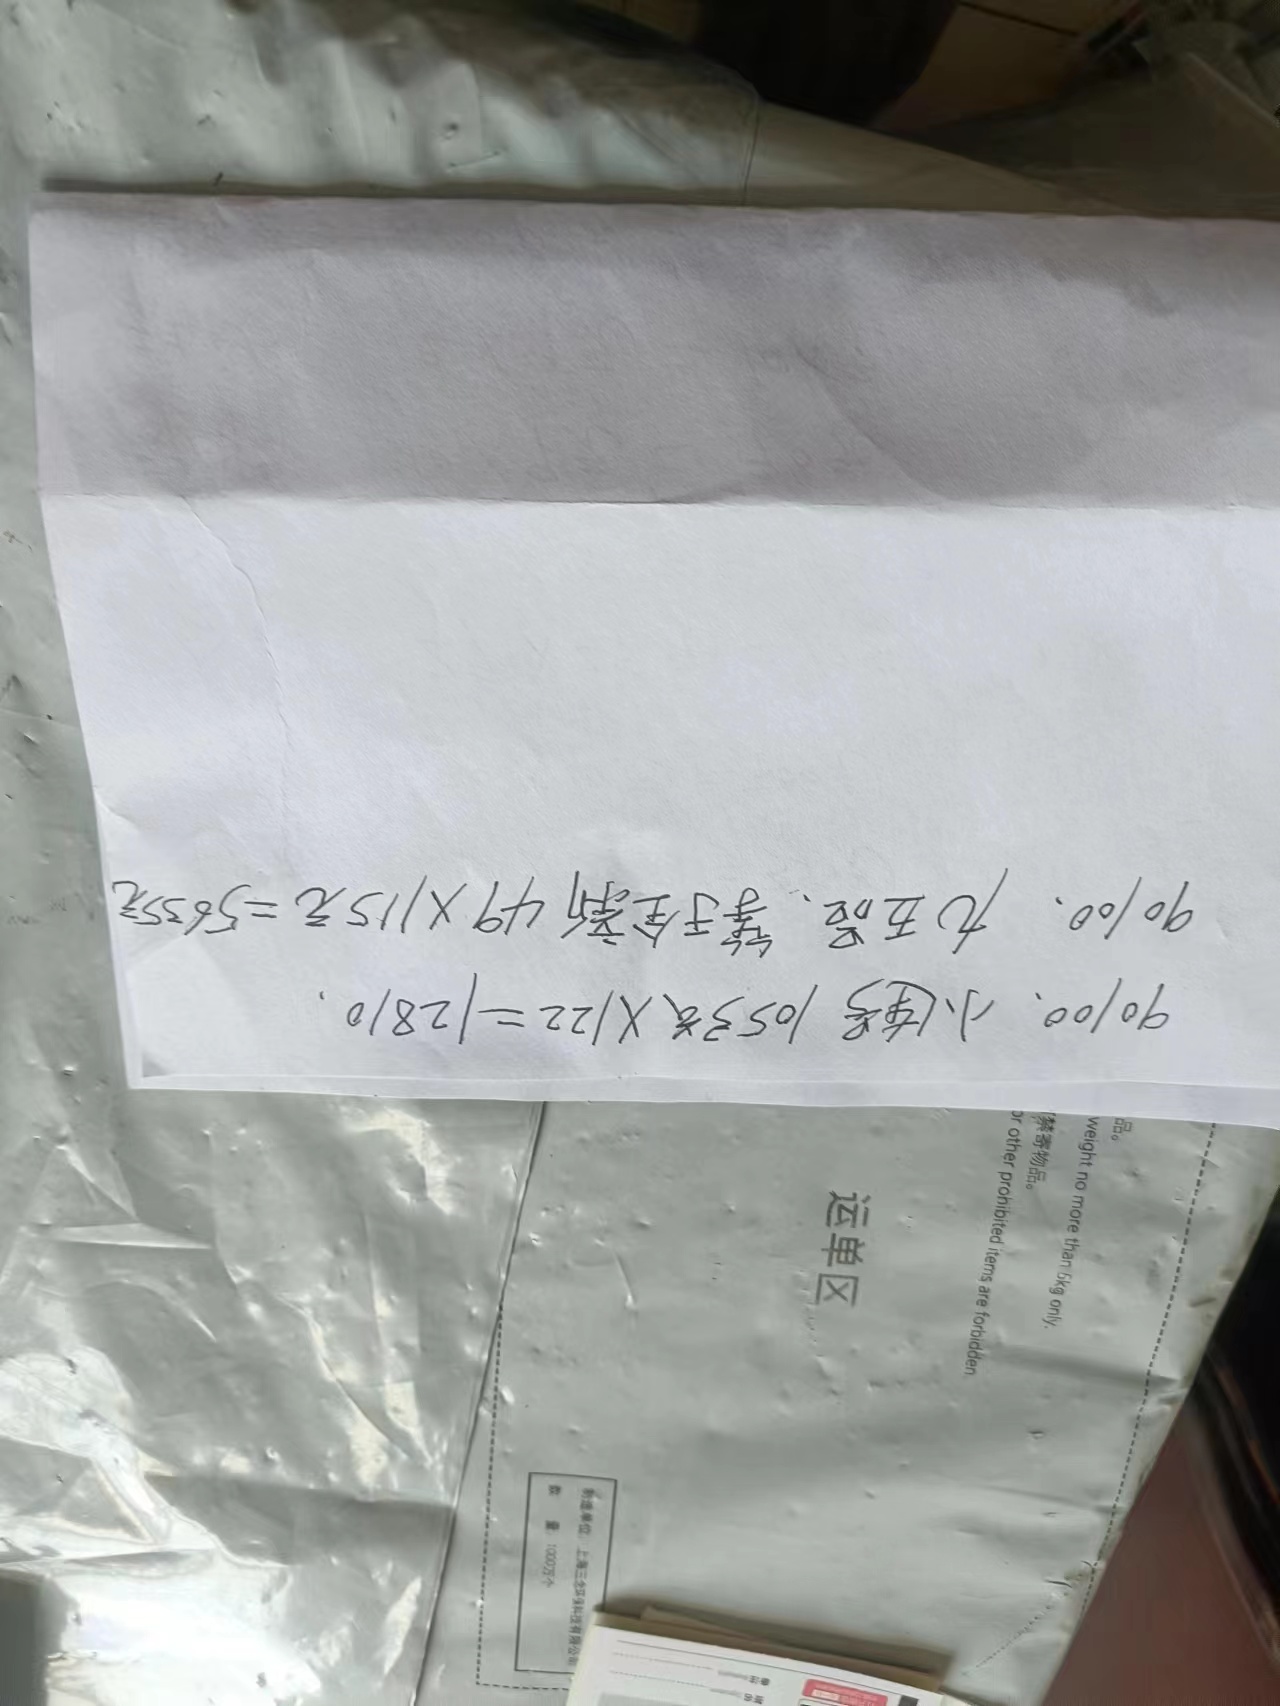 90100. 小连号 105张X122=12810.
90100. 九五品、等于全新49X115元=5635元
品。
weight no more than 5kg only.
禁寄物品。
or other prohibited items are forbidden.
运单区
制造单位：上海三念环保科技有限公司
数 量：1000万个